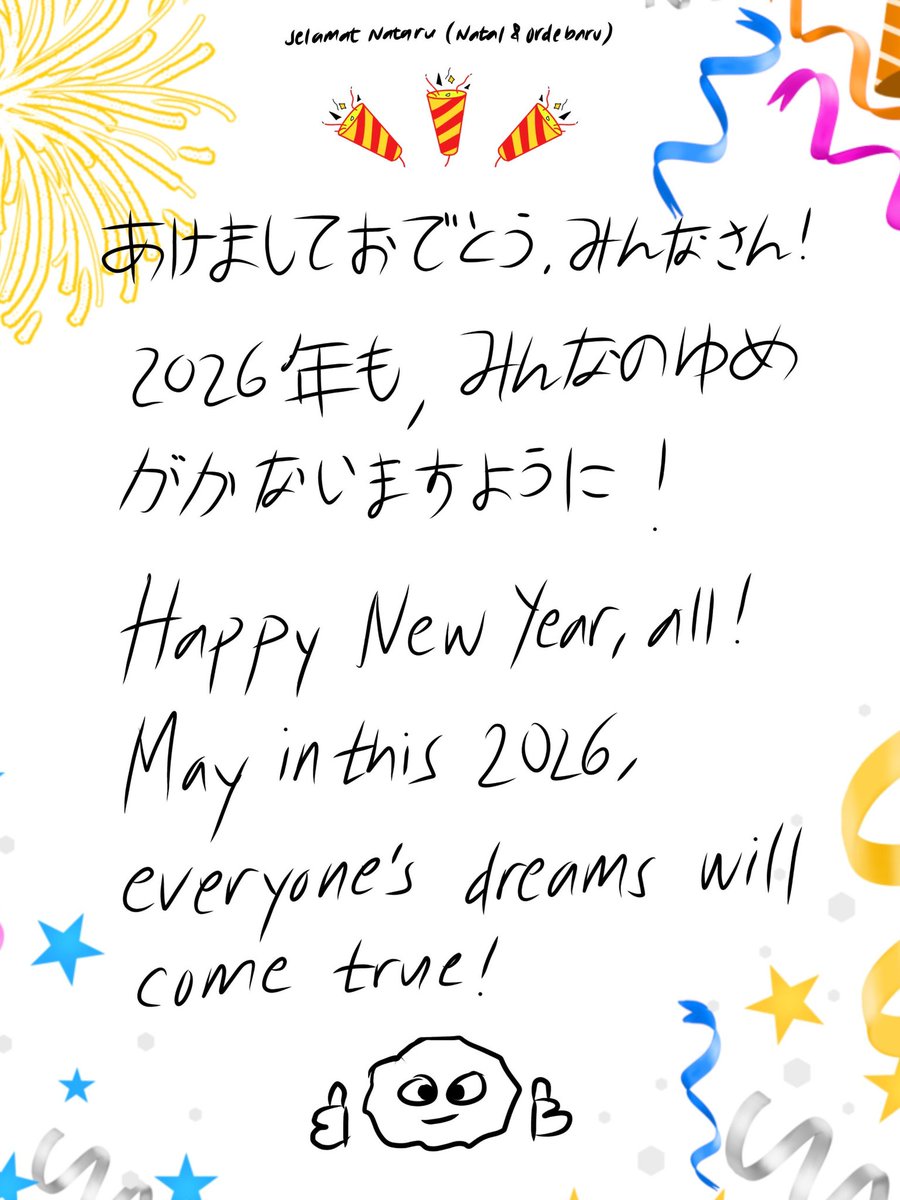 Selamat Nataru (Natal & orde baru)
あけましておでとう、みんなさん!
2026年も, みんなのゆめ
がかないますように!
Happy New Year, all!
May in this 2026,
everyone's dreams will
come true!